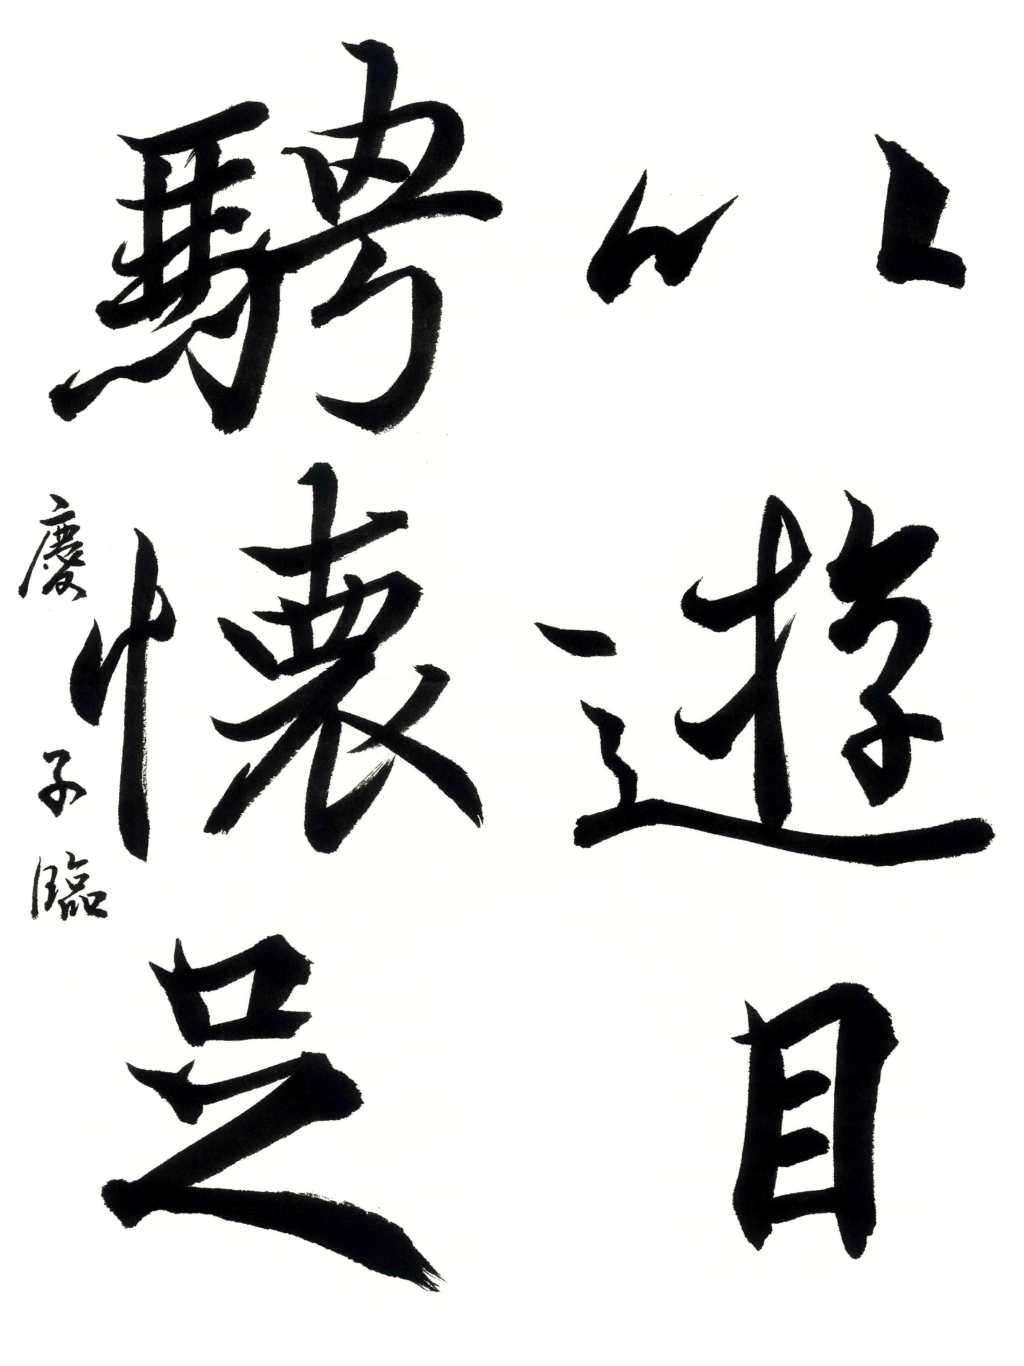 以遊目
騁懐足
慶子臨